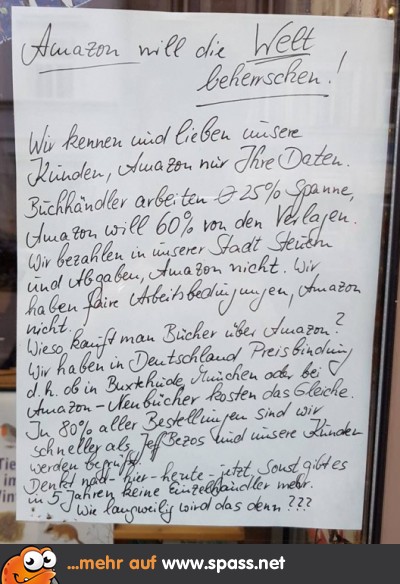 Amazon will die Welt
beherrschen!
Wir kennen und lieben unsere
Kunden, Amazon nur Ihre Daten.
Buchhändler arbeiten Ø 25% Spanne,
Amazon will 60% von den Verlagen.
Wir bezahlen in unserer Stadt Steuern
und Abgaben, Amazon nicht. Wir
haben faire Arbeitsbedingungen, Amazon
nicht.
Wieso kauft man Bücher über Amazon?
Wir haben in Deutschland Preisbindung
d.h. ob in Buxtehude, München oder bei
Amazon - Neubücher kosten das Gleiche.
In 80% aller Bestellungen sind wir
schneller als Jeff Bezos und unsere Kunden
werden begrüßt.
Denkt nach - hier - heute - jetzt, sonst gibt es
in 5 Jahren keine Einzelhändler mehr.
Wie langweilig wird das denn???
Tie
in
Win
...mehr auf www.spass.net